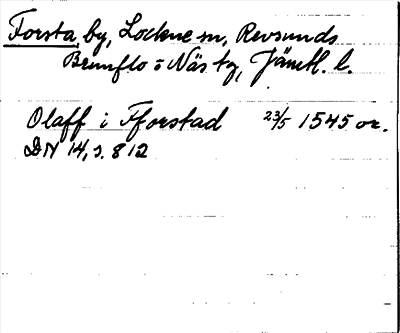 Forsta by, Lockne sn, Revsunds
Brunflo o Näs tg, Jämtl. l.
Olaff i Fforstad 23/5 1545 or.
DN 14, s. 812